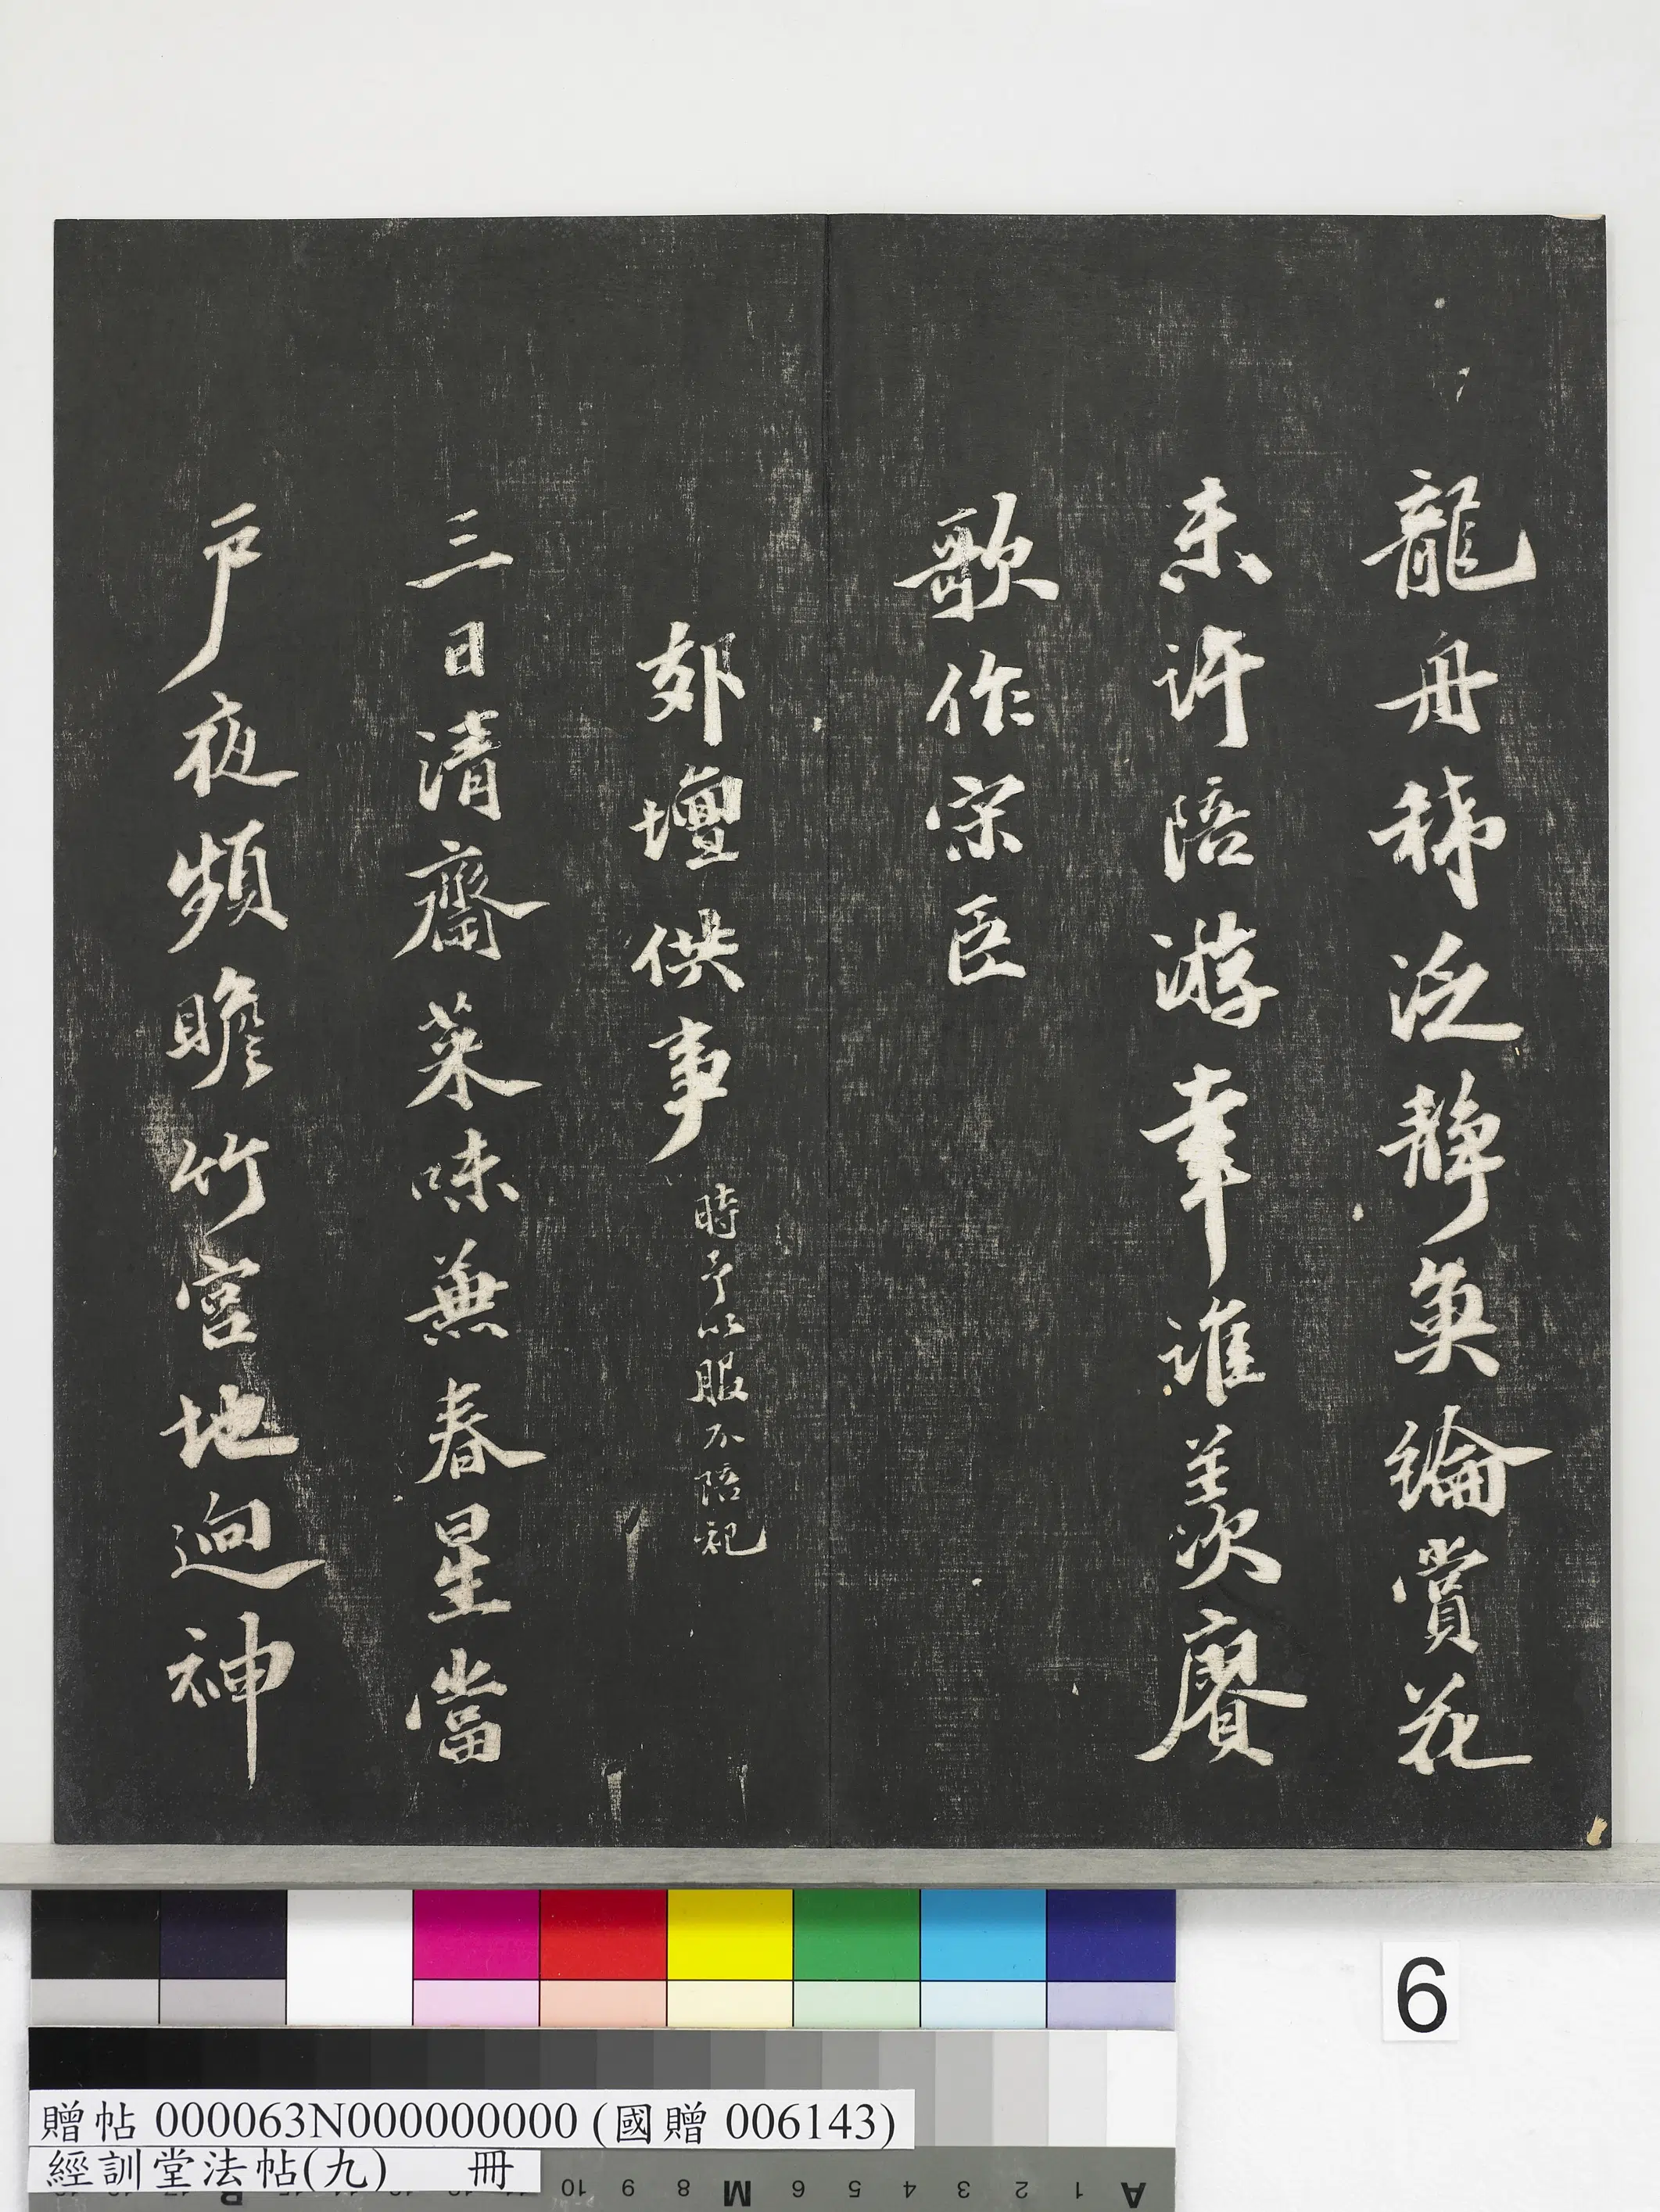 龍舟稀泛靜奐綸賞花
未許陪游幸誰羨次賡
歌作宗臣
郊壇供事
時予以服不陪祀
三日清齋菜味無春星當
戶夜頻瞻竹宮地迥神
6
贈帖 000063N000000000 (國贈 006143)
經訓堂法帖(九) 冊
10 9 8 M 6 5 4 3 2 1 A